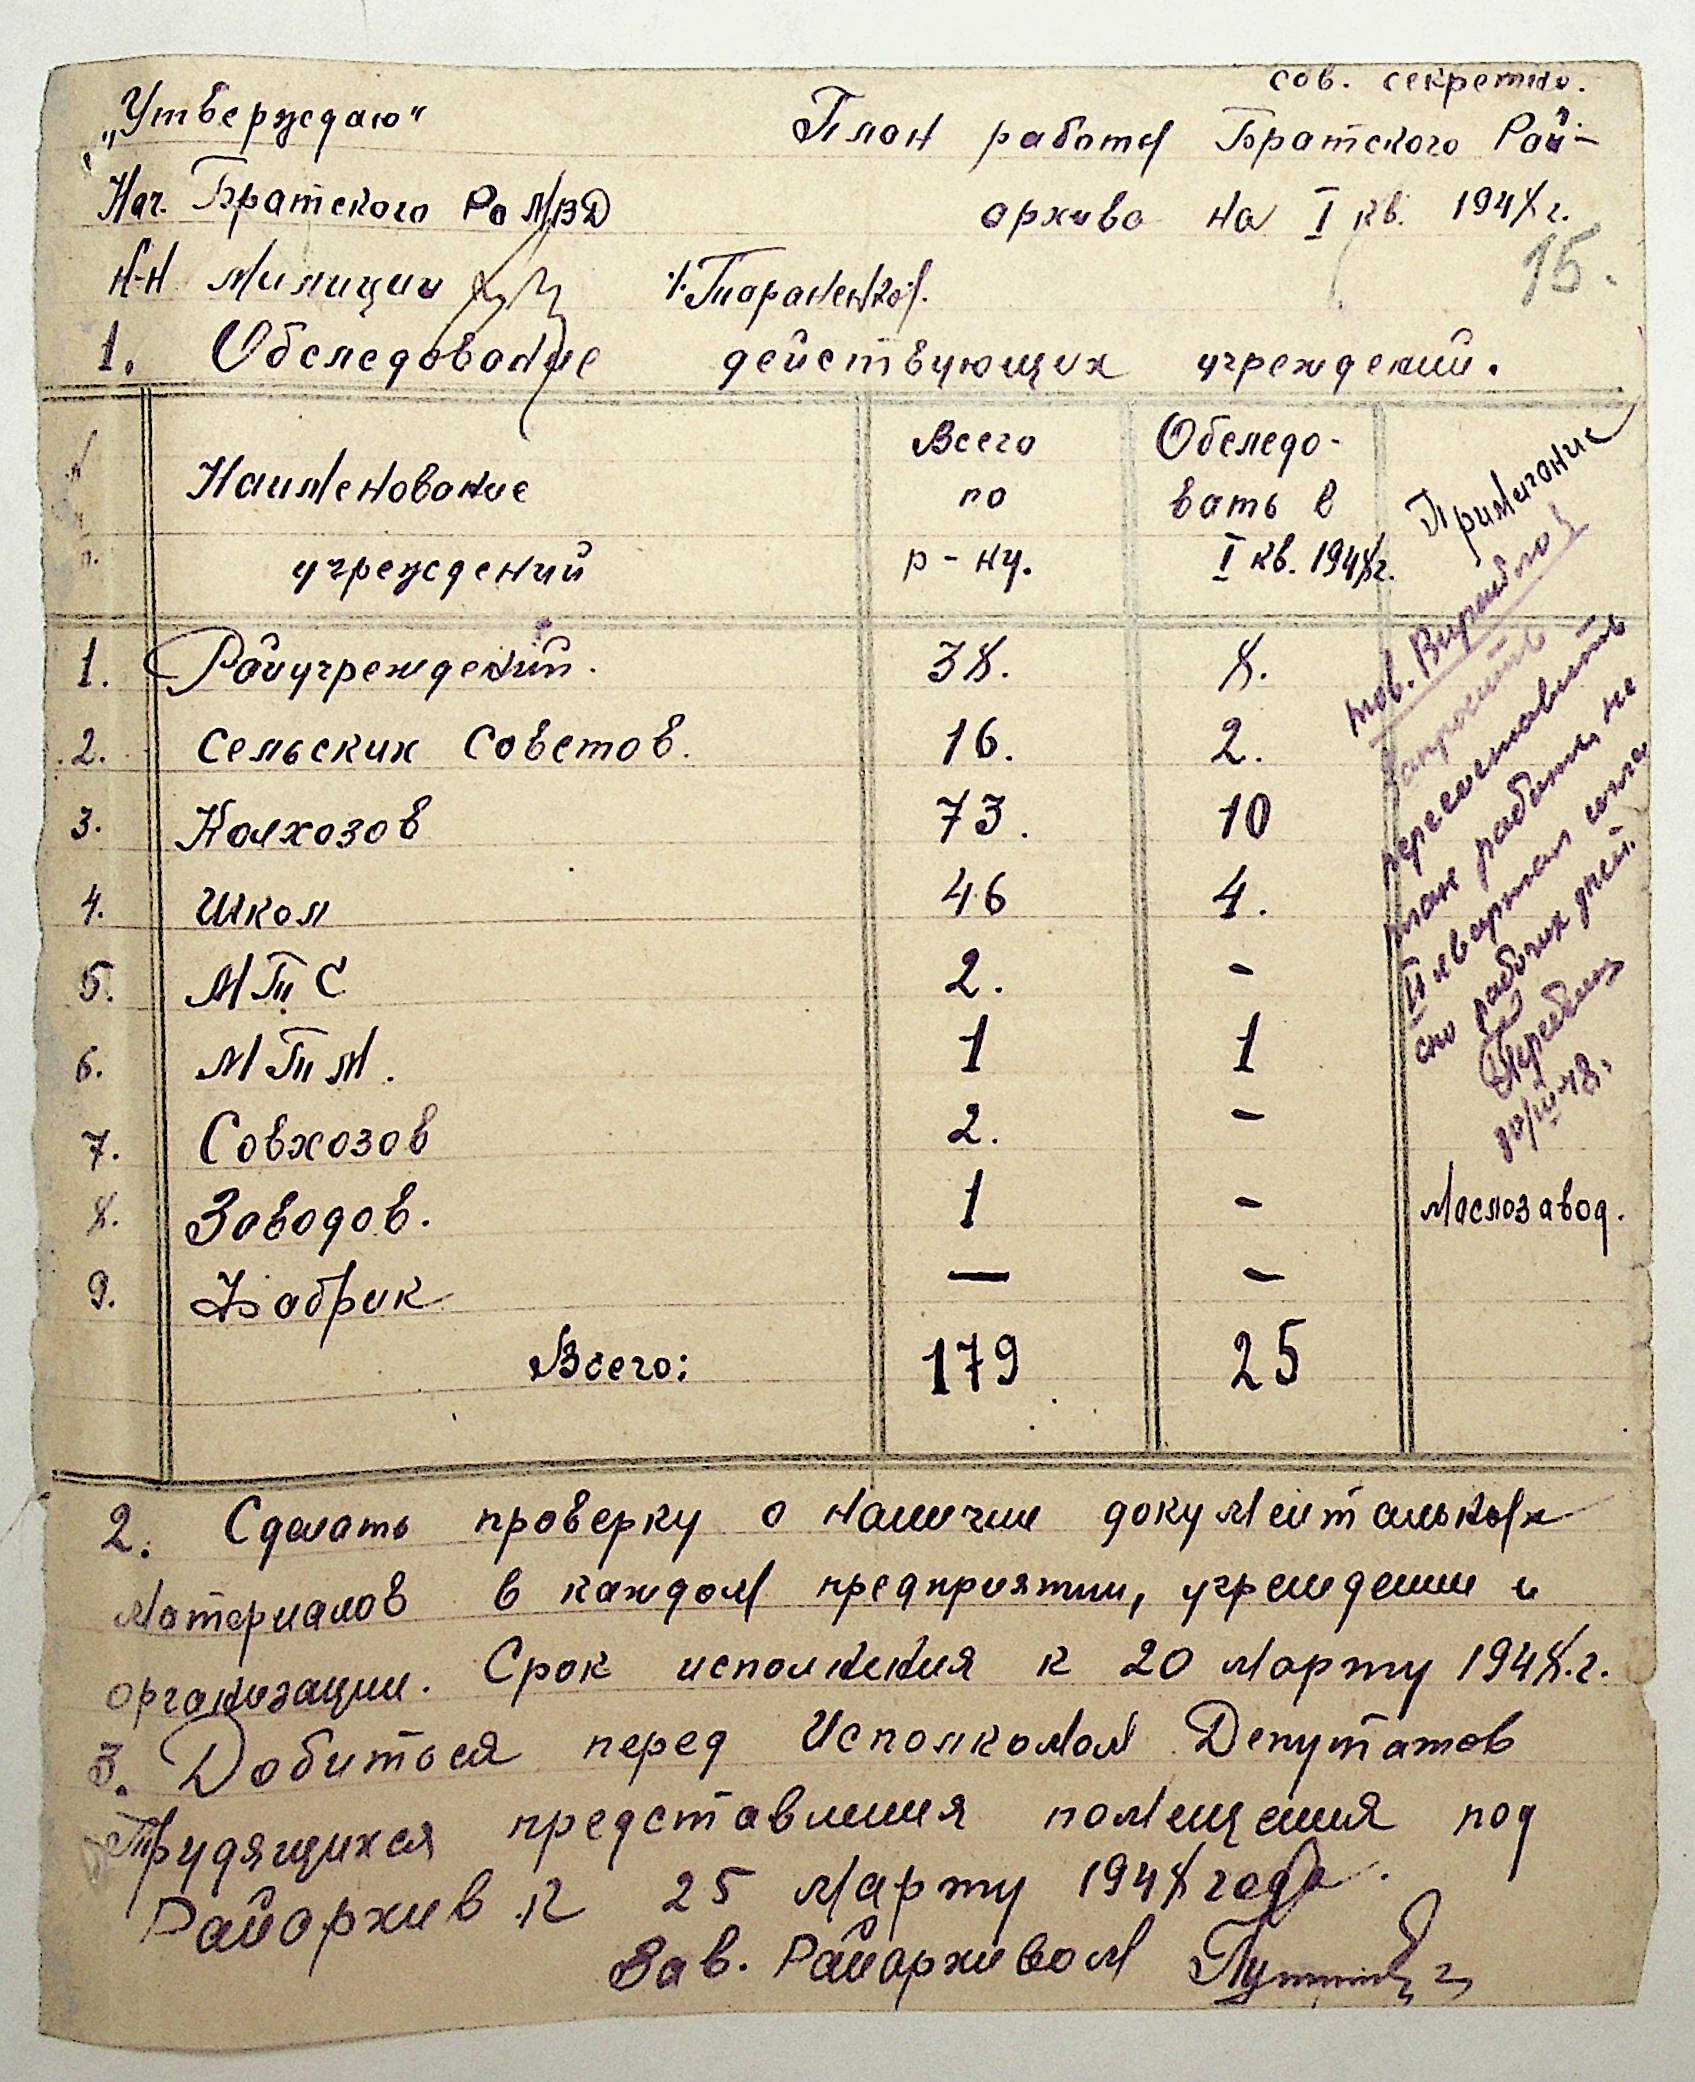 сов. секретно.
„Утверждаю"
План работы Братского Рай-
Нач. Братского Ро МВД
архива на I кв. 1948 г.
15.
К-н Милиции /Тараненко/.
1. Обследование действующих учреждений.
№ п. Наименование учреждений
Всего по р-ну.
Обследовать в I кв. 1948 г.
Примечание
1. Райучреждений. 38. 8.
2. Сельских Советов. 16. 2.
3. Колхозов 73. 10
4. Школ 46 4.
5. МТС 2. -
6. МТМ. 1 1
7. Совхозов 2. -
8. Заводов. 1 - Маслозавод.
9. Фабрик — -
Всего: 179 25
тов.
пересоставить
план работы, на
II квартал
рабочих дней.
2. Сделать проверку о наличии документальных
Материалов в каждом предприятии, учреждении и
организации. Срок исполнения к 20 Марту 1948.г.
3. Добиться перед Исполкомом Депутатов
Трудящихся представления помещения под
Райархив к 25 Марту 1948 года.
Зав. Райархивом